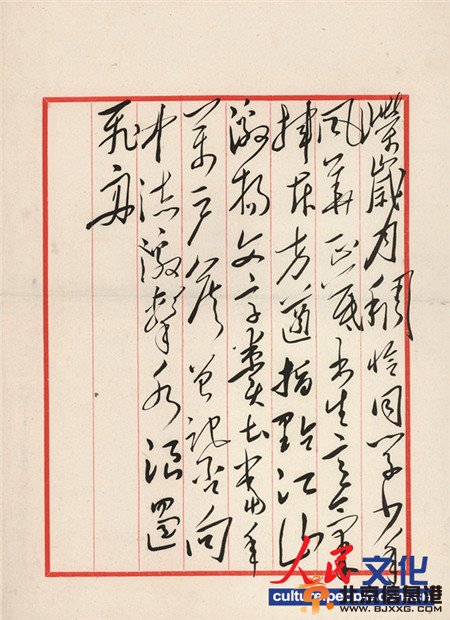 嶸歲月稠恰同学少年
风華正茂书生意气
挥斥方遒指點江山
激扬文字粪土当年
万户侯曾记否向
中流激擊水浪遏
飞舟
人民 文化
culture.people.com.cn
北京信息港
WWW.BJXXG.COM